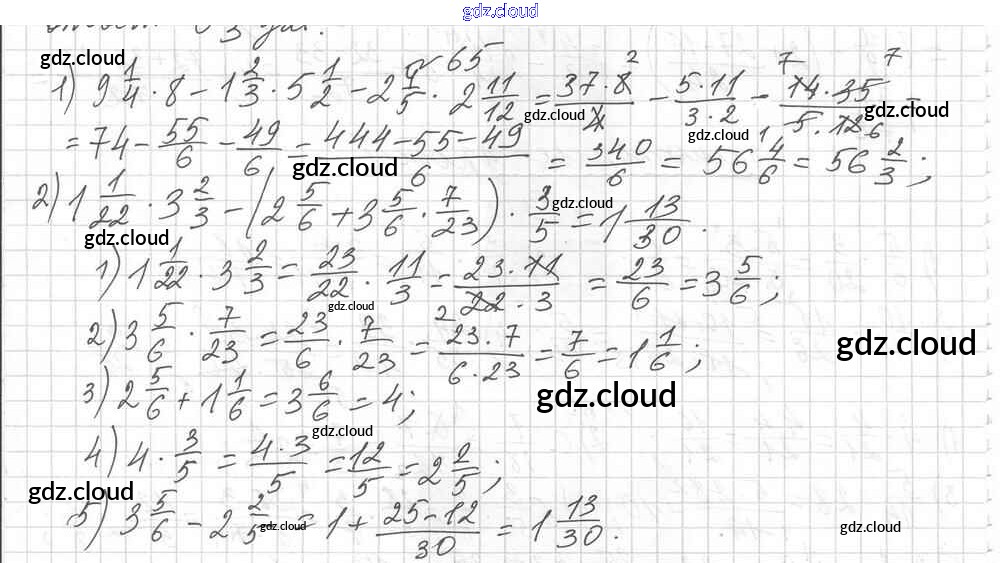 gdz.cloud
№ 65
1) 9 1/4 · 8 − 1 2/3 · 5 1/2 − 2 4/5 · 2 11/12 = 37·8/4 − 5·11/3·2 − 14·35/5·12 =
= 74 − 55/6 − 49/6 = 444−55−49/6 = 340/6 = 56 4/6 = 56 2/3;
2) 1 1/22 · 3 2/3 − (2 5/6 + 3 5/6 · 7/23) · 3/5 = 1 13/30.
1) 1 1/22 · 3 2/3 = 23/22 · 11/3 = 23·11/22·3 = 23/6 = 3 5/6;
2) 3 5/6 · 7/23 = 23/6 · 7/23 = 23·7/6·23 = 7/6 = 1 1/6;
3) 2 5/6 + 1 1/6 = 3 6/6 = 4;
4) 4 · 3/5 = 4·3/5 = 12/5 = 2 2/5;
5) 3 5/6 − 2 2/5 = 1 + 25−12/30 = 1 13/30.
gdz.cloud
gdz.cloud
gdz.cloud
gdz.cloud
gdz.cloud
gdz.cloud
gdz.cloud
gdz.cloud
gdz.cloud
gdz.cloud
gdz.cloud
gdz.cloud
gdz.cloud
gdz.cloud